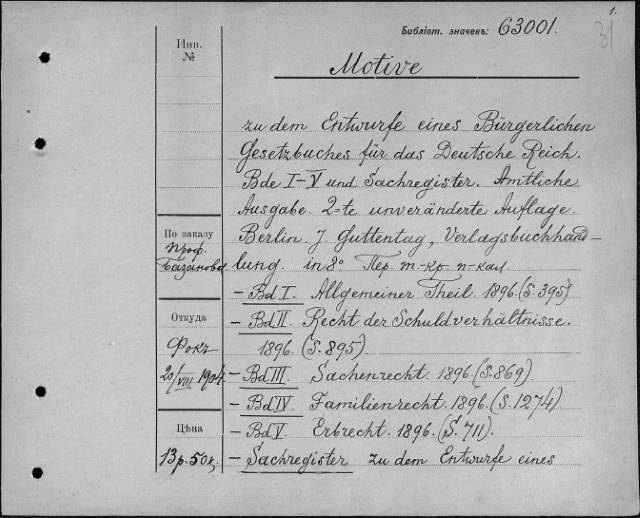 1.
Библіот. значекъ: 63001.
31
Инв.
№
Motive
zu dem Entwurfe eines Bürgerlichen
Gesetzbuches für das Deutsche Reich.
Bde I-V und Sachregister. Amtliche
Ausgabe. 2=te unveränderte Auflage.
По заказу
Проф.
Базанова
Berlin. J. Guttentag, Verlagsbuchhand-
lung. in 8° Пер. т-кр. п-кал
- Bd I. Allgemeiner Theil. 1896. (S. 395)
Откуда
Фокъ
20/VIII 1904.
- Bd II. Recht der Schuldverhältnisse.
1896. (S. 895)
- Bd III. Sachenrecht. 1896. (S. 869)
- Bd IV. Familienrecht. 1896. (S. 1274)
Цѣна
13 р. 50 к.
- Bd V. Erbrecht. 1896. (S. 711).
- Sachregister zu dem Entwurfe eines